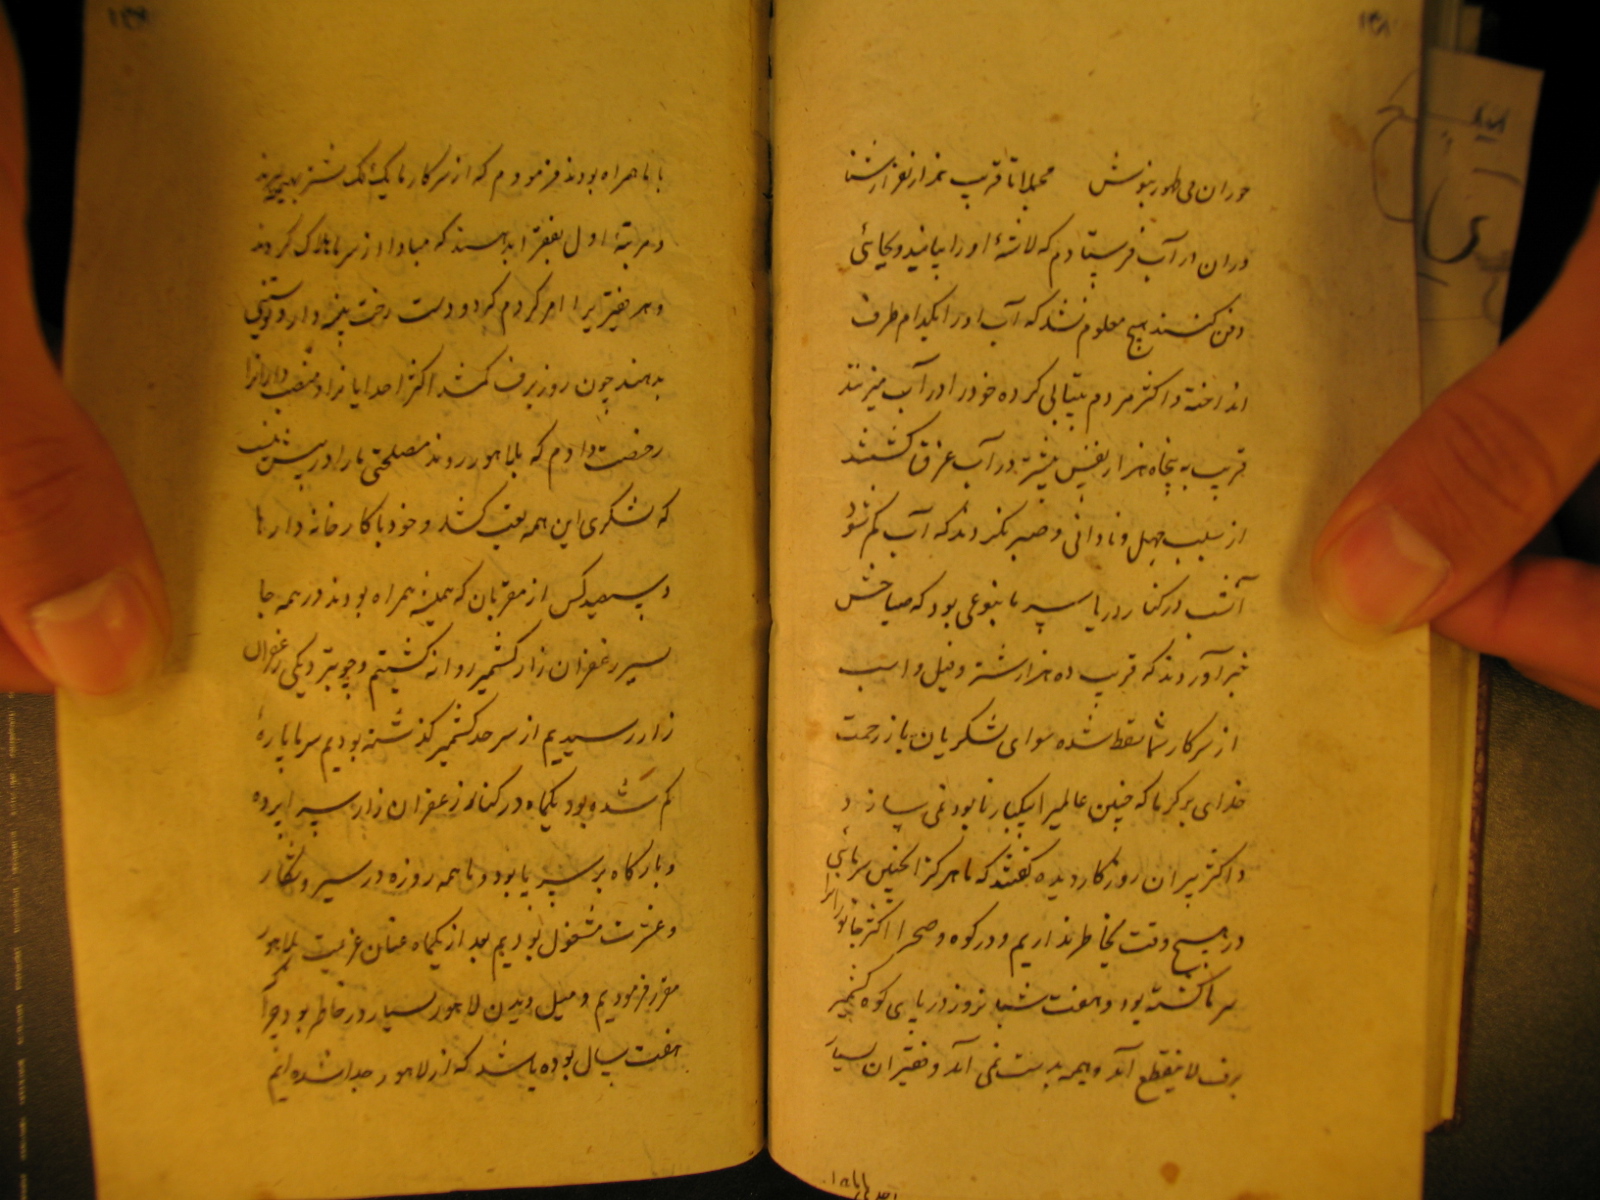 حوران می طهور بنوش مجملا تا قریب نیز از نفر از شنا
دران در آب فرستادم که لاشهٔ او را بیابند و بجائی
دفن کنند هیچ معلوم نشد که آب او را بکدام طرف
انداخته و اکثر مردم بیتابی کرده خود را در آب میزدند
قریب به پنجاه هزار نفس بیشتر در آب غرق گشتند
از سبب جهل و نادانی و صبر نکردند که آب کم شود
آنشب در کنار دریا سر ما بنوعی بود که صباحش
خبر آوردند که قریب ده هزار شتر و فیل و اسب
از سرکار شما سقط شده سوای لشکریان باز رحمت
خدای بر گرما که چنین عالمیرا بیکبار نابود نمی سازد
و اکثر پیران روزگار دیده گفتند که ما هرگز اینچنین سرمائی
در هیچ وقت بخاطر نداریم و در کوه و صحرا اکثر جانورانرا
سرما کشته بود و هفت شبانروز در بالای کوه کشمیر
برف لاینقطع آمد و هیمه بدست نمی آمد و فقیران بسیار
با ما همراه بودند فرمودم که از سرکار ما یک یک شتر بهیزم
مرتبهٔ اول بفقرا بدهند که مبادا از سرما هلاک گردند
و هر فقیریرا امر کردم که دو دست رخت پنبه دار و پوستینی
بدهند چون روز برف کم شد اکثر احدیانرا و منصب دارانرا
رخصت دادم که بلاهور روند مصلحتی ما را در پیش نیست
که لشکری این همه تعب کشد و خود با کارخانه دارها
و سیصد کس از مقربان که همیشه همراه بودند در همه جا
بسیر زعفران زار کشمیر روانه گشتیم و چو بنزدیکی زعفران
زار رسیدیم از سرحد کشمیر گذشته بودیم سرما پارهٔ
کم شده بود یکماه در کنار زعفران زار سراپرده
و بارگاه بر سر پا بود و ما همه روزه در سیر و شکار
و عشرت مشغول بودیم بعد از یکماه عنان عزیمت بلاهور
مقرر فرمودیم و میل دیدن لاهور بسیار در خاطر بود چرا که
هفت سال بوده باشد که از لاهور جدا شده ایم